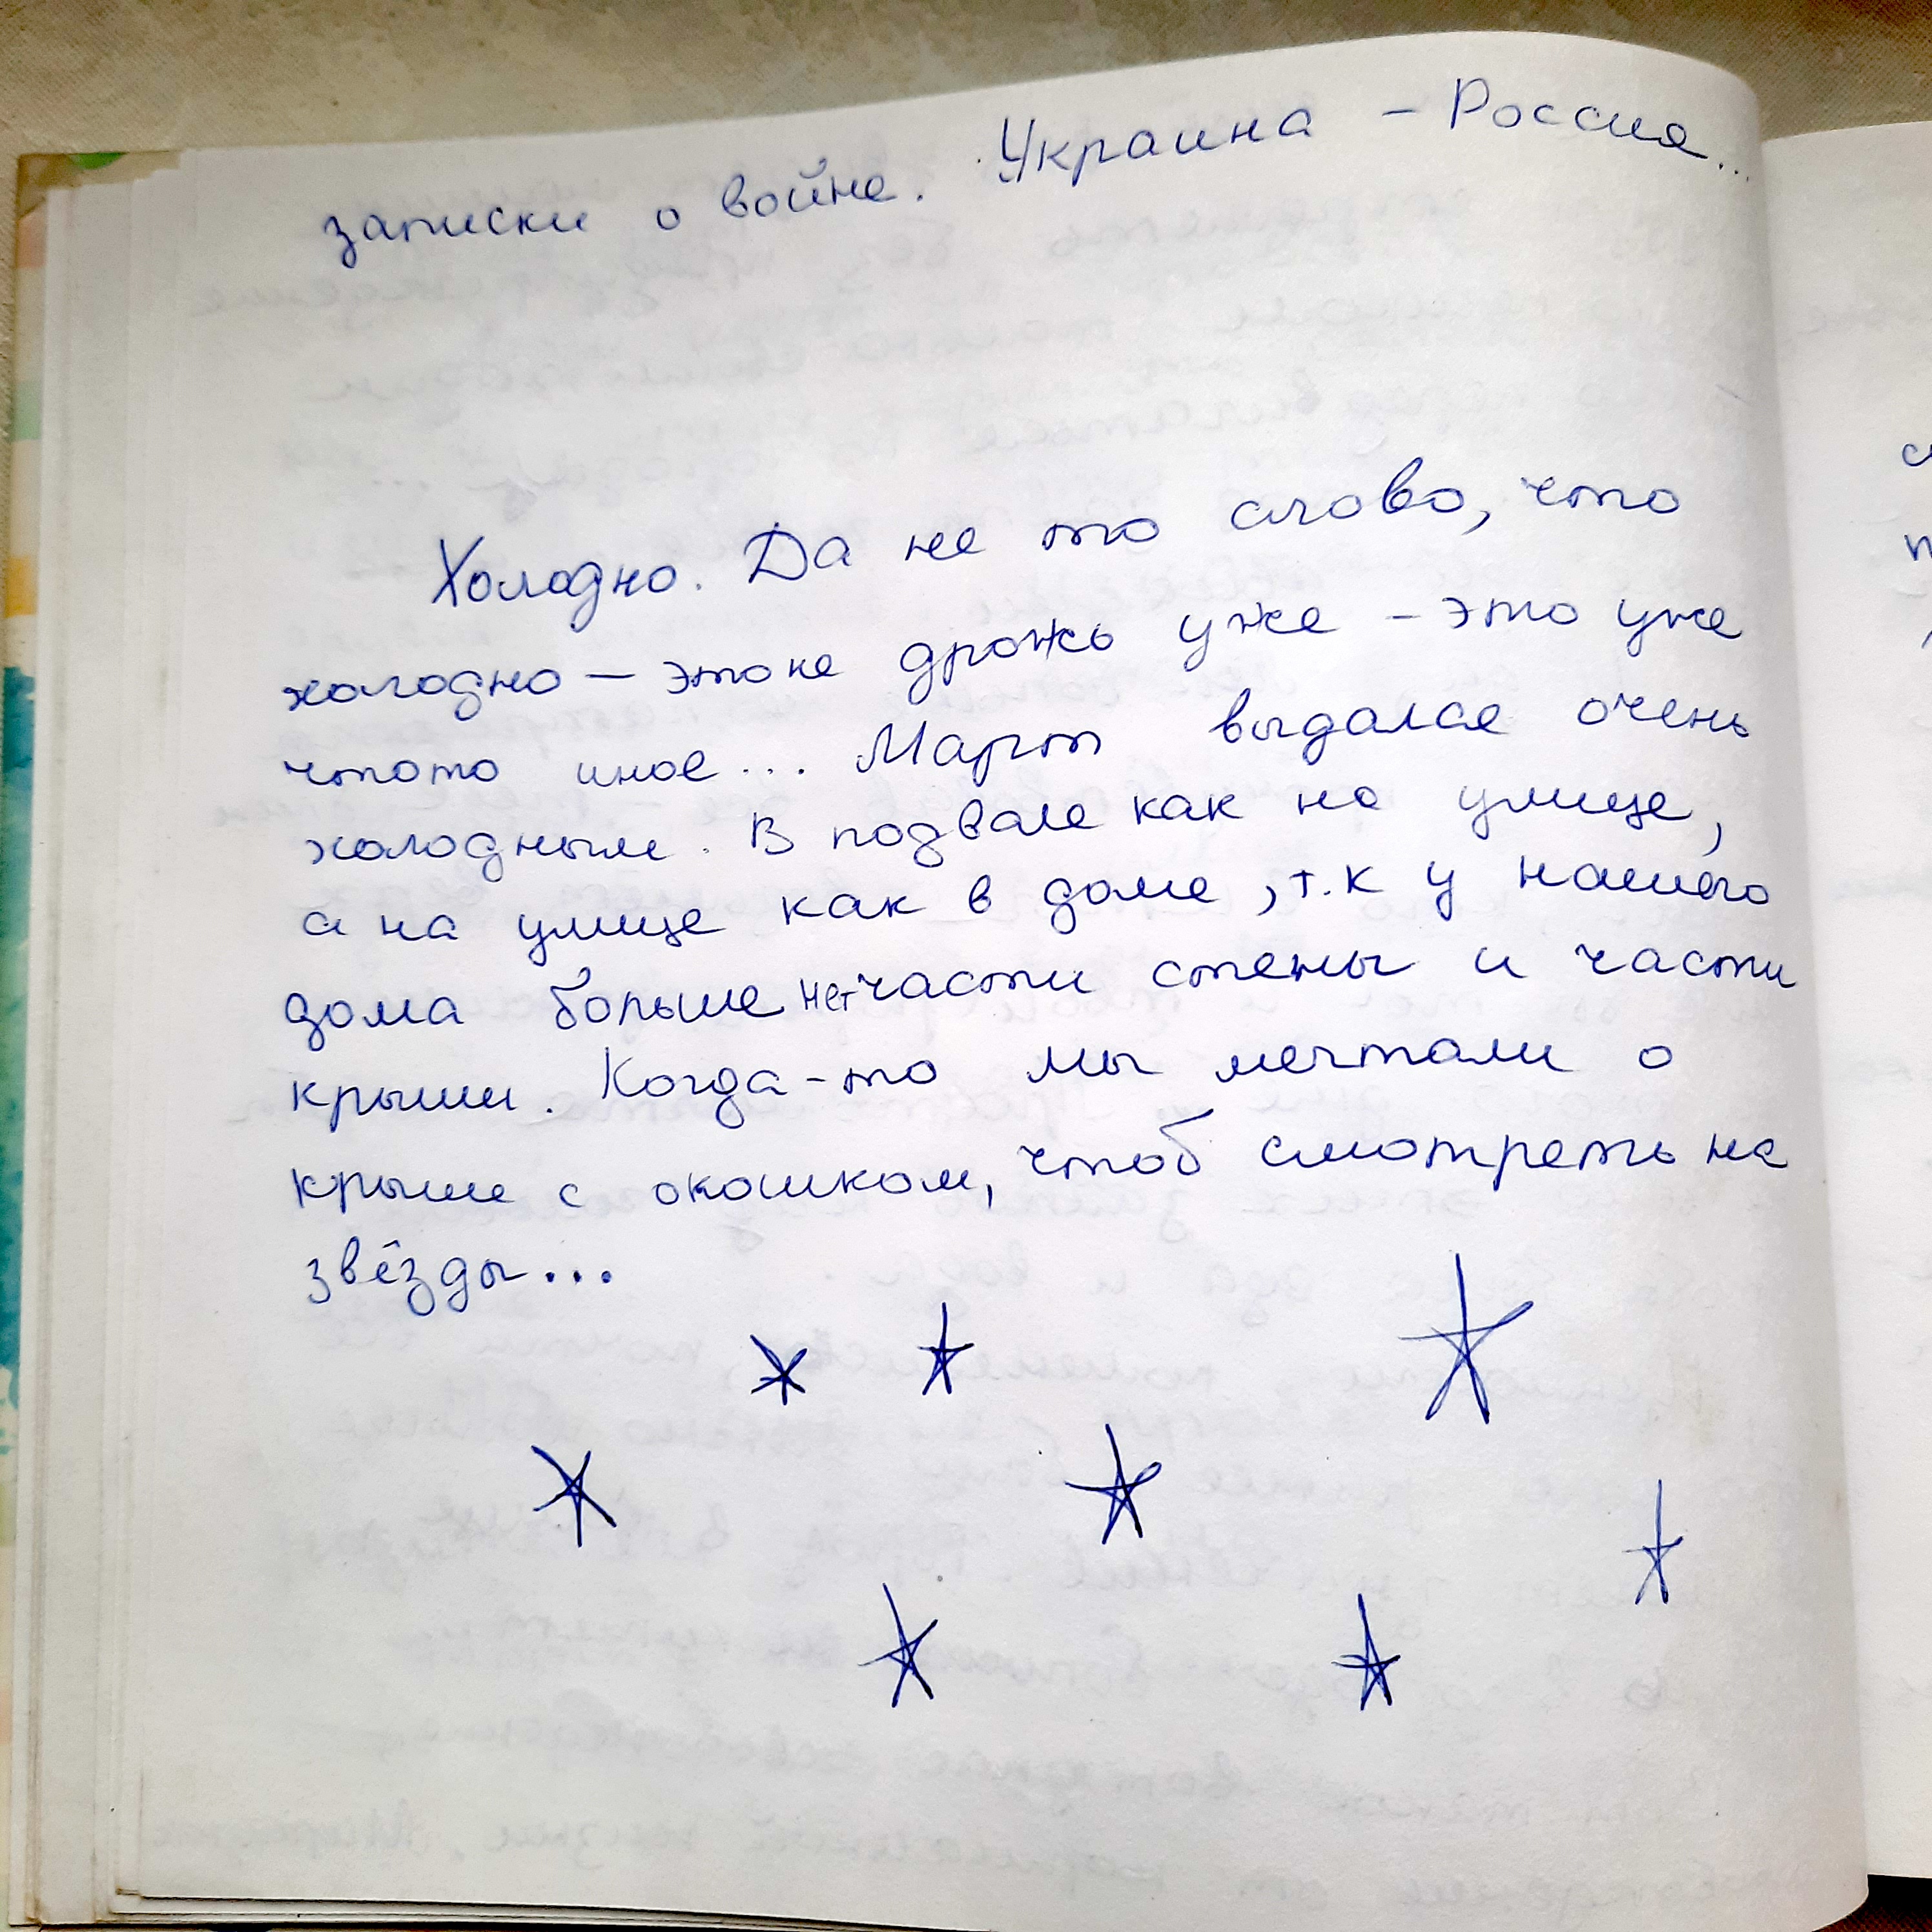 записки о войне. Украина – Россия...
Холодно. Да не то слово, что
холодно – это не дрожь уже – это уже
чтото иное... Март выдался очень
холодным. В подвале как на улице,
а на улице как в доме, т.к у нашего
дома больше нет части стены и части
крыши. Когда-то мы мечтали о
крыше с окошком, чтоб смотреть на
звёзды...